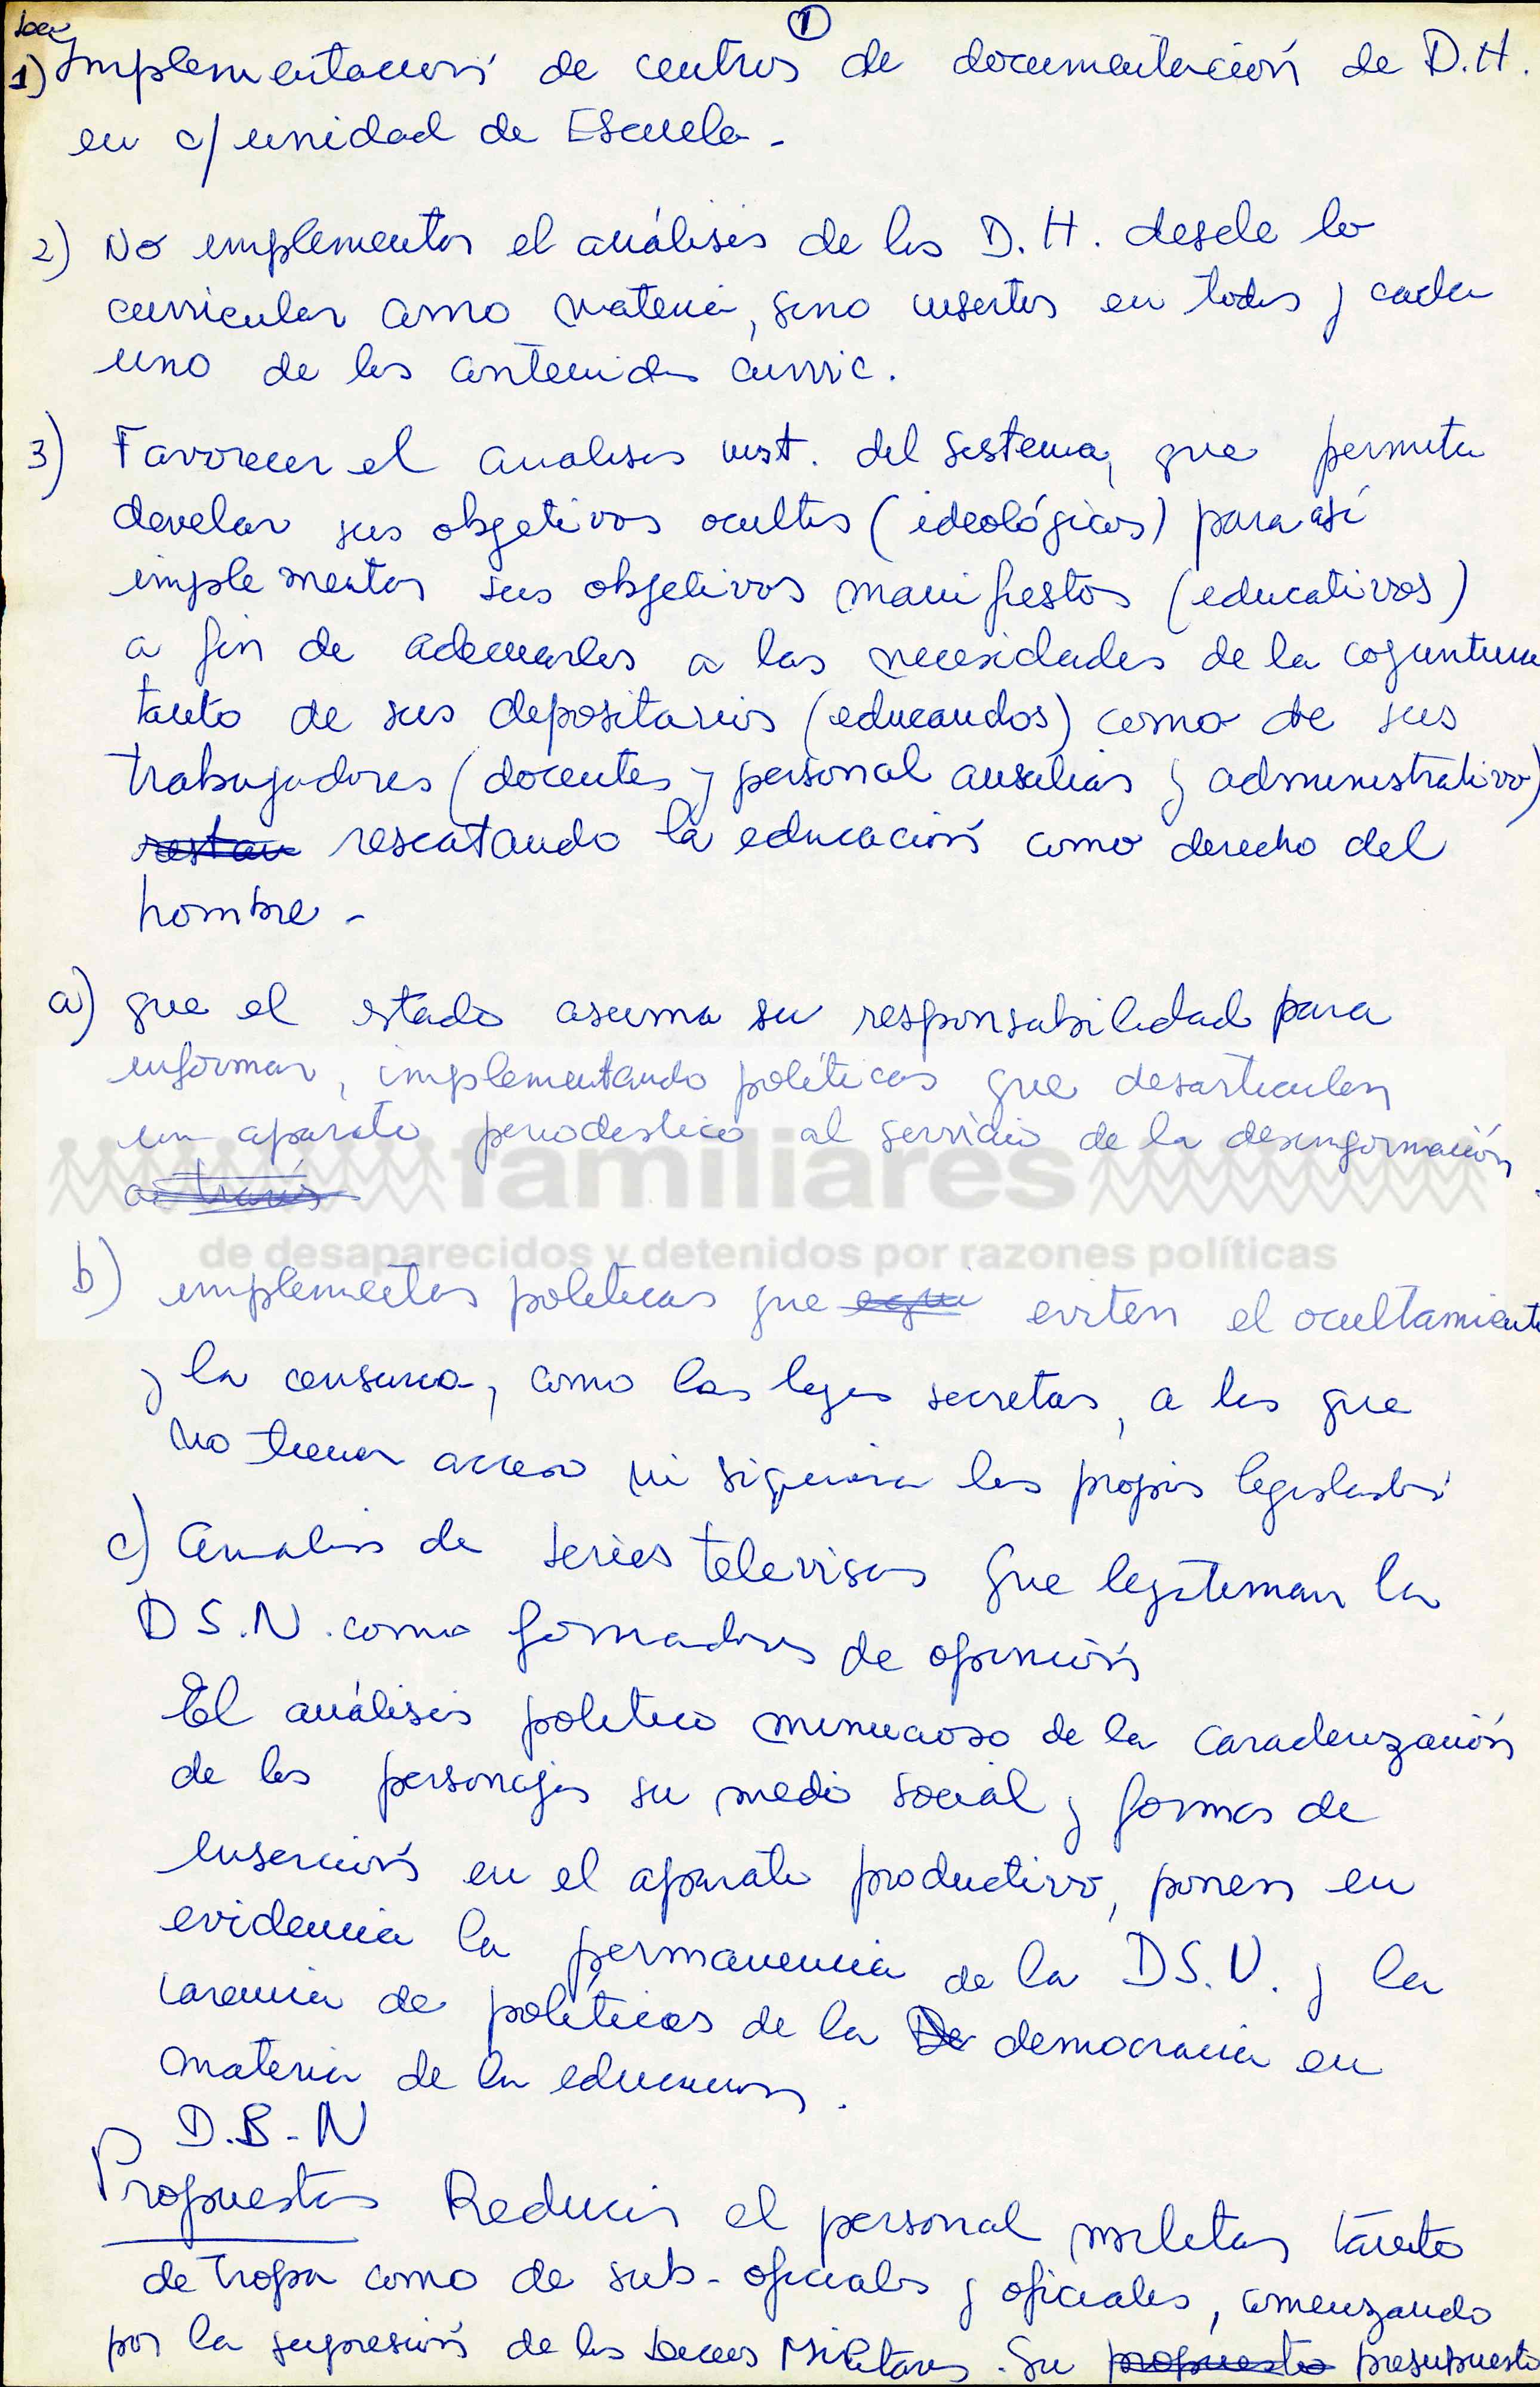 ①
1) Implementación de centros de documentación de D.H.
en c/ unidad de Escuela.
2) No implementar el análisis de los D.H. desde lo
curricular como materia, sino insertos en todos y cada
uno de los contenidos curric.
3) Favorecer el analisis inst. del sistema, que permita
develar sus objetivos ocultos (ideológicos) para así
implementar sus objetivos manifiestos (educativos)
a fin de adecuarlos a las necesidades de la coyuntura
tanto de sus depositarios (educandos) como de sus
trabajadores (docentes y personal auxiliar y administrativo)
restau rescatando la educación como derecho del
hombre -
a) que el estado asuma su responsabilidad para
informar, implementando políticas que desarticulen
un aparato periodistico al servicio de la desinformación
a través
familiares
de desaparecidos y detenidos por razones políticas
b) implementar politicas que eviten el ocultamiento
y la censura, como las leyes secretas, a las que
no tienen acceso ni siquiera los propios legislador
c) Analisis de series televisivas que legitiman la
D S.N. como formadores de opinión
El análisis politico minucioso de la caracterización
de los personajes su medio social y formas de
inserción en el aparato productivo, ponen en
evidencia la permanencia de la D S.N. y la
carencia de políticas de la De democracia en
materia de la educacion.
D.S.N
Propuestas Reducir el personal militar tanto
de tropa como de sub-oficiales y oficiales, comenzando
por la supresión de los Liceos Militares. Su propuesto presupuesto